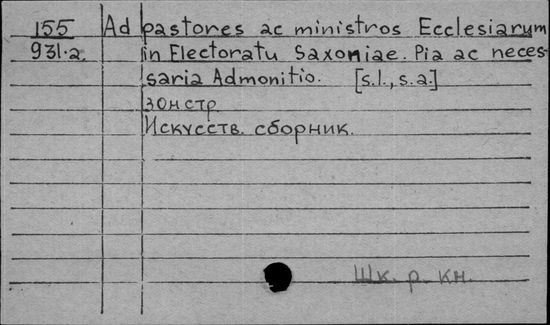 155 Ad pastores ac ministros Ecclesiarum
931.a. in Electoratu Saxoniae. Pia ac neces-
saria Admonitio. [s.l., s.a.]
30 нстр
Искусств. сборник.
Шк. р. кн.